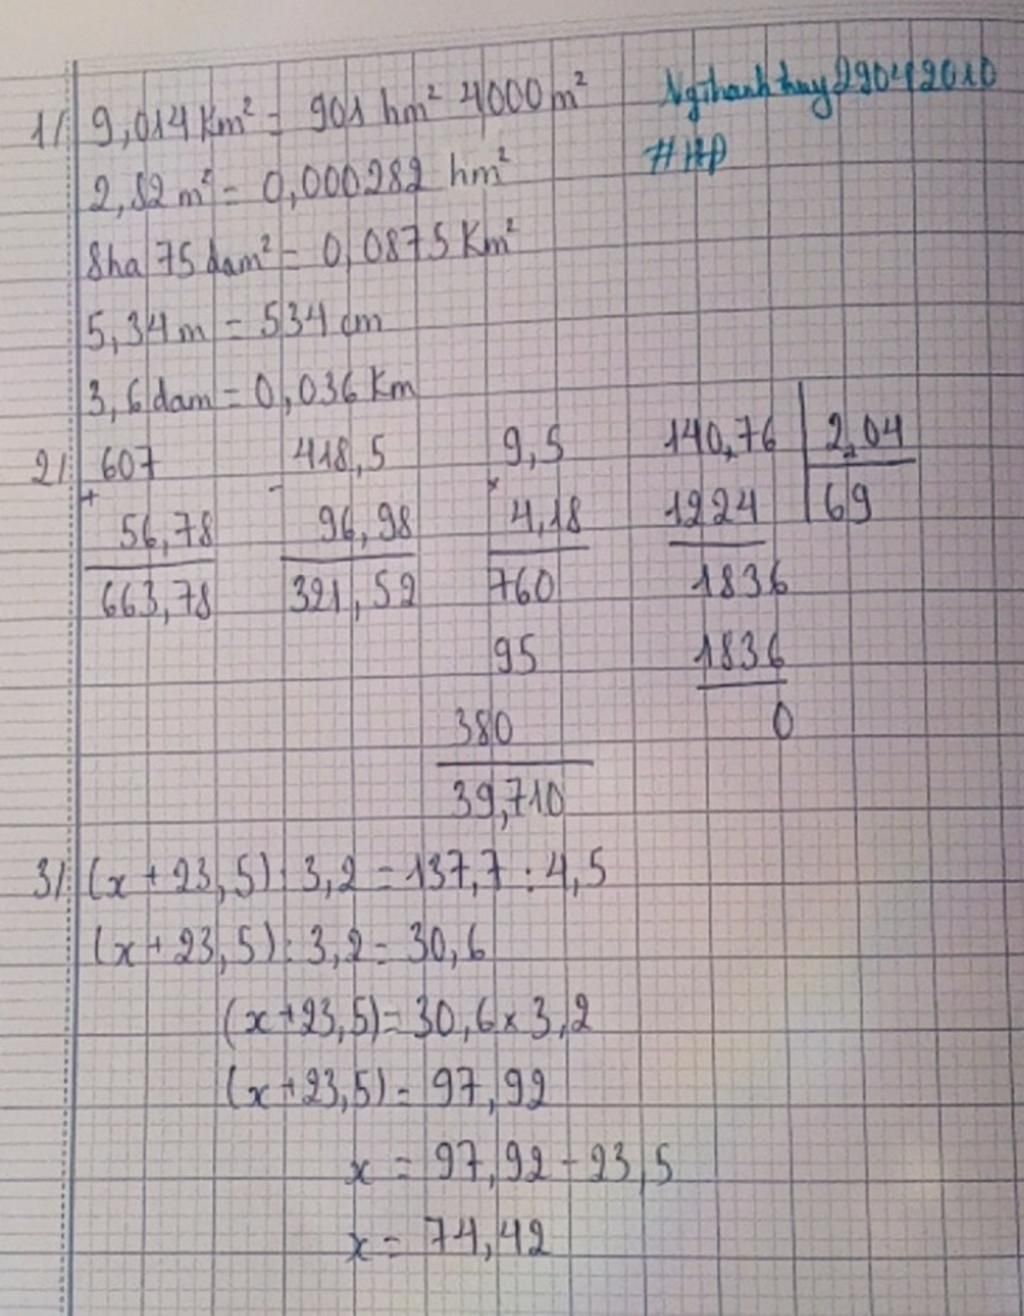 1/ 9,014 Km² = 901 hm² 4000 m²
Ngthanhthuy29042010
#HĐ
2,82 m² = 0,000282 hm²
8ha 75 dam² = 0,0875 Km²
5,34 m = 534 cm
3,6 dam = 0,036 Km
2/ 607 418,5 9,5 140,76 | 2,04
+ - × 1224 | 69
56,78 96,98 4,18
663,78 321,52 760 1836
95 1836
380 0
39,710
3/ (x + 23,5) : 3,2 = 137,7 : 4,5
(x + 23,5) : 3,2 = 30,6
(x + 23,5) = 30,6 x 3,2
(x + 23,5) = 97,92
x = 97,92 - 23,5
x = 74,42